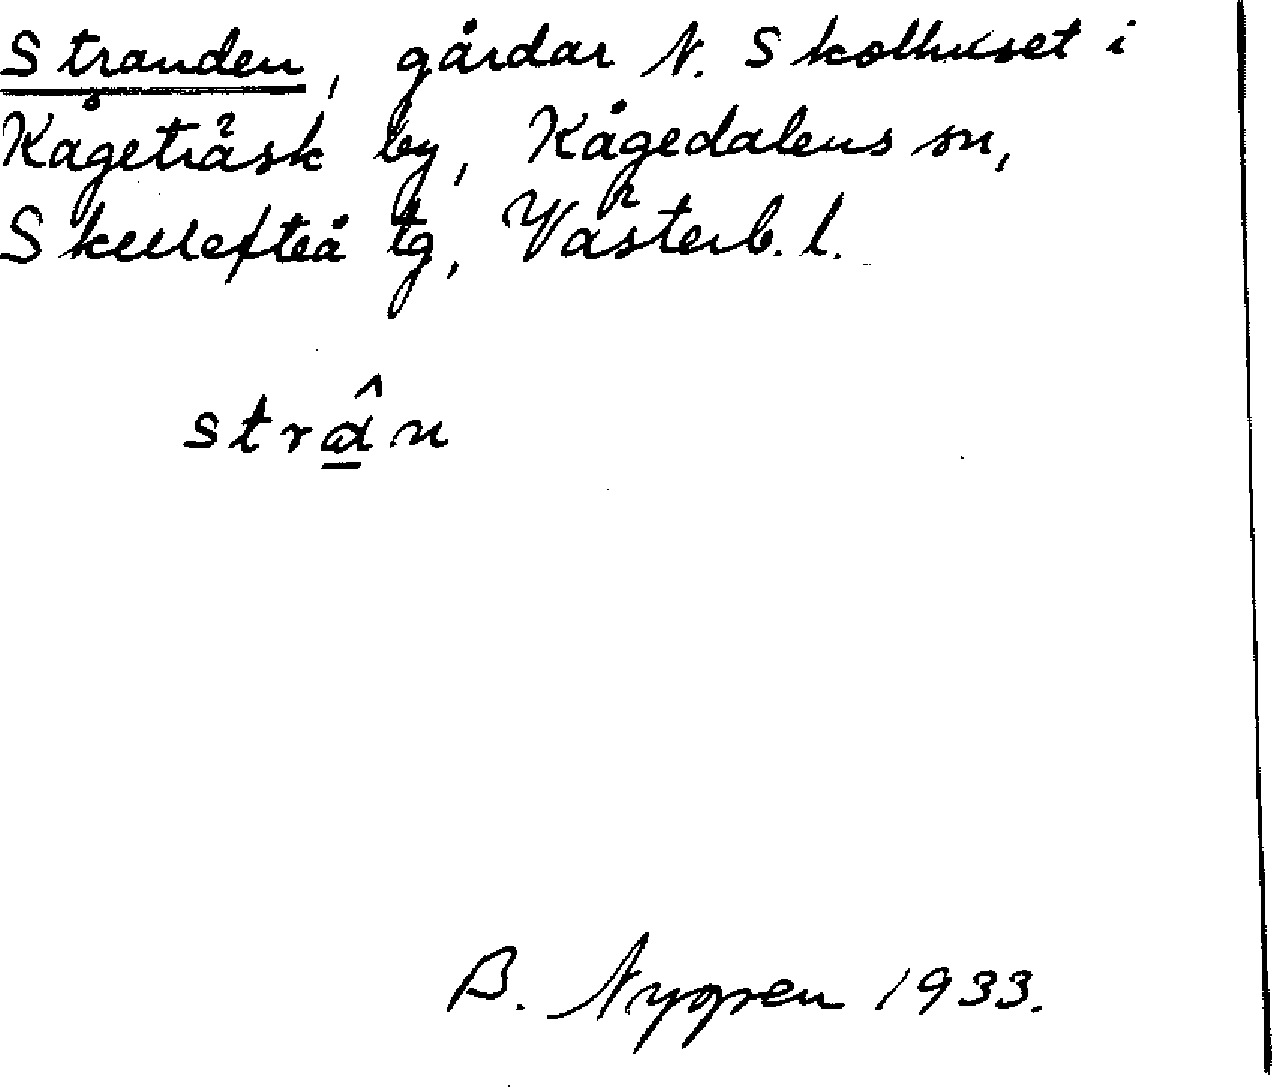 Stranden, gårdar N. Skolhuset i
Kågeträsk by, Kågedalens sn,
Skellefteå tg, Västerb. l.
strɑ̂n
B. Nygren 1933.